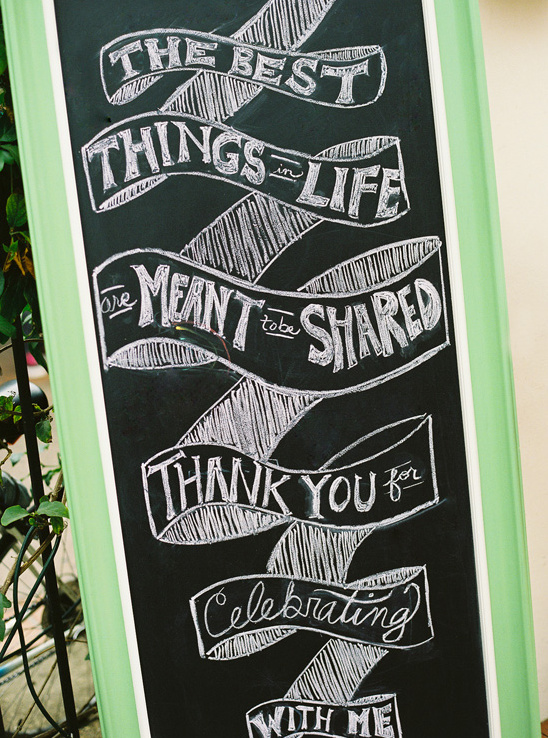 THE BEST
THINGS in LIFE
are MEANT to be SHARED
THANK YOU for
Celebrating
WITH ME